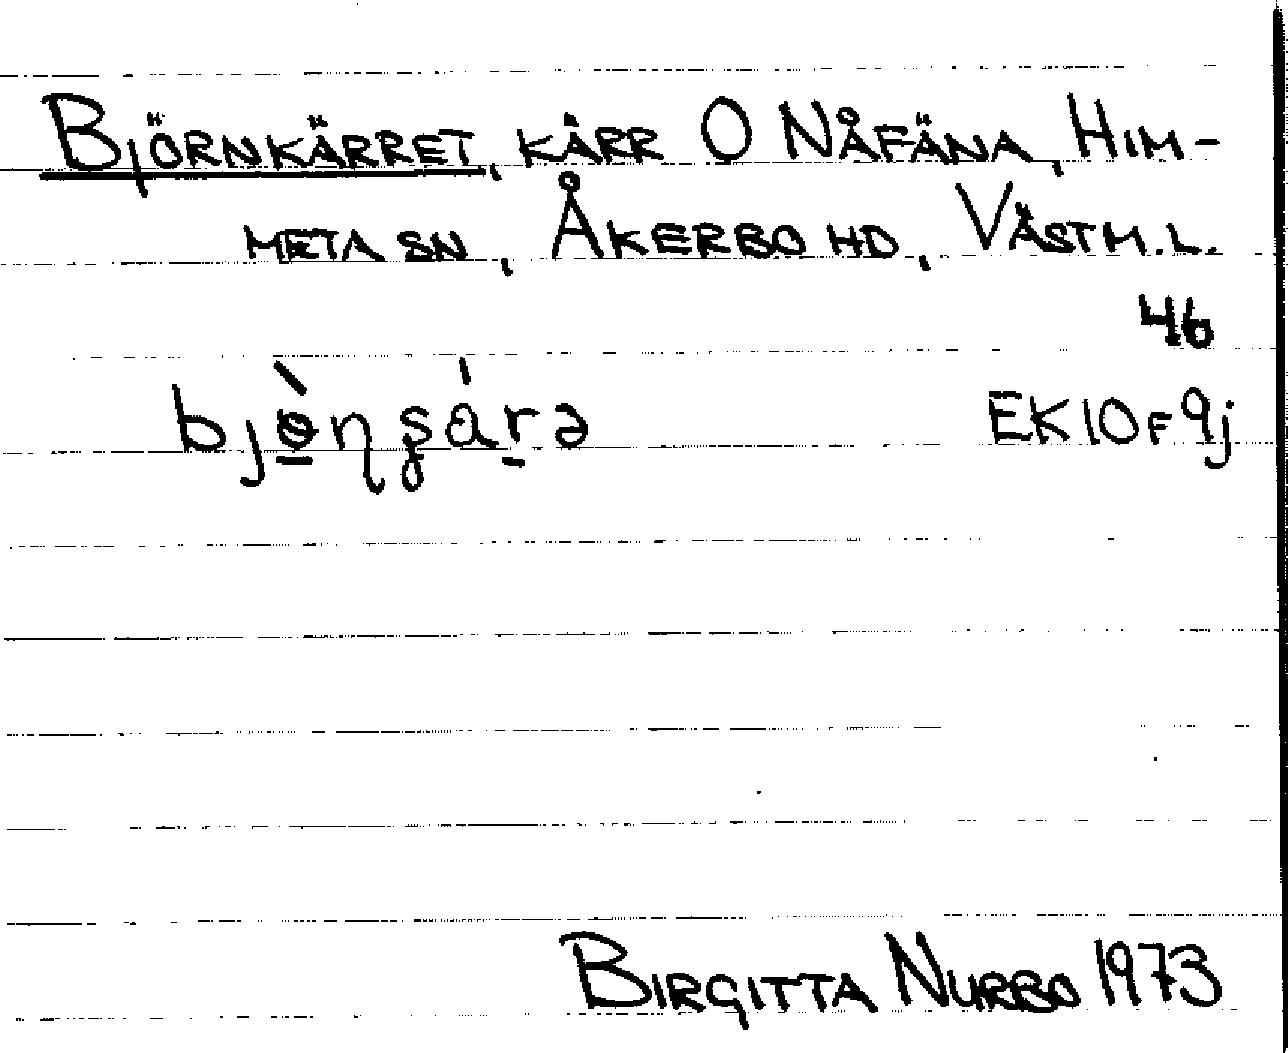 Björnkärret, kärr O Nåfäna, Him-
meta sn, Åkerbo hd, Västm.l.
46
bjɵ̀ɳʂárə EK 10F9j
Birgitta Nurbo 1973